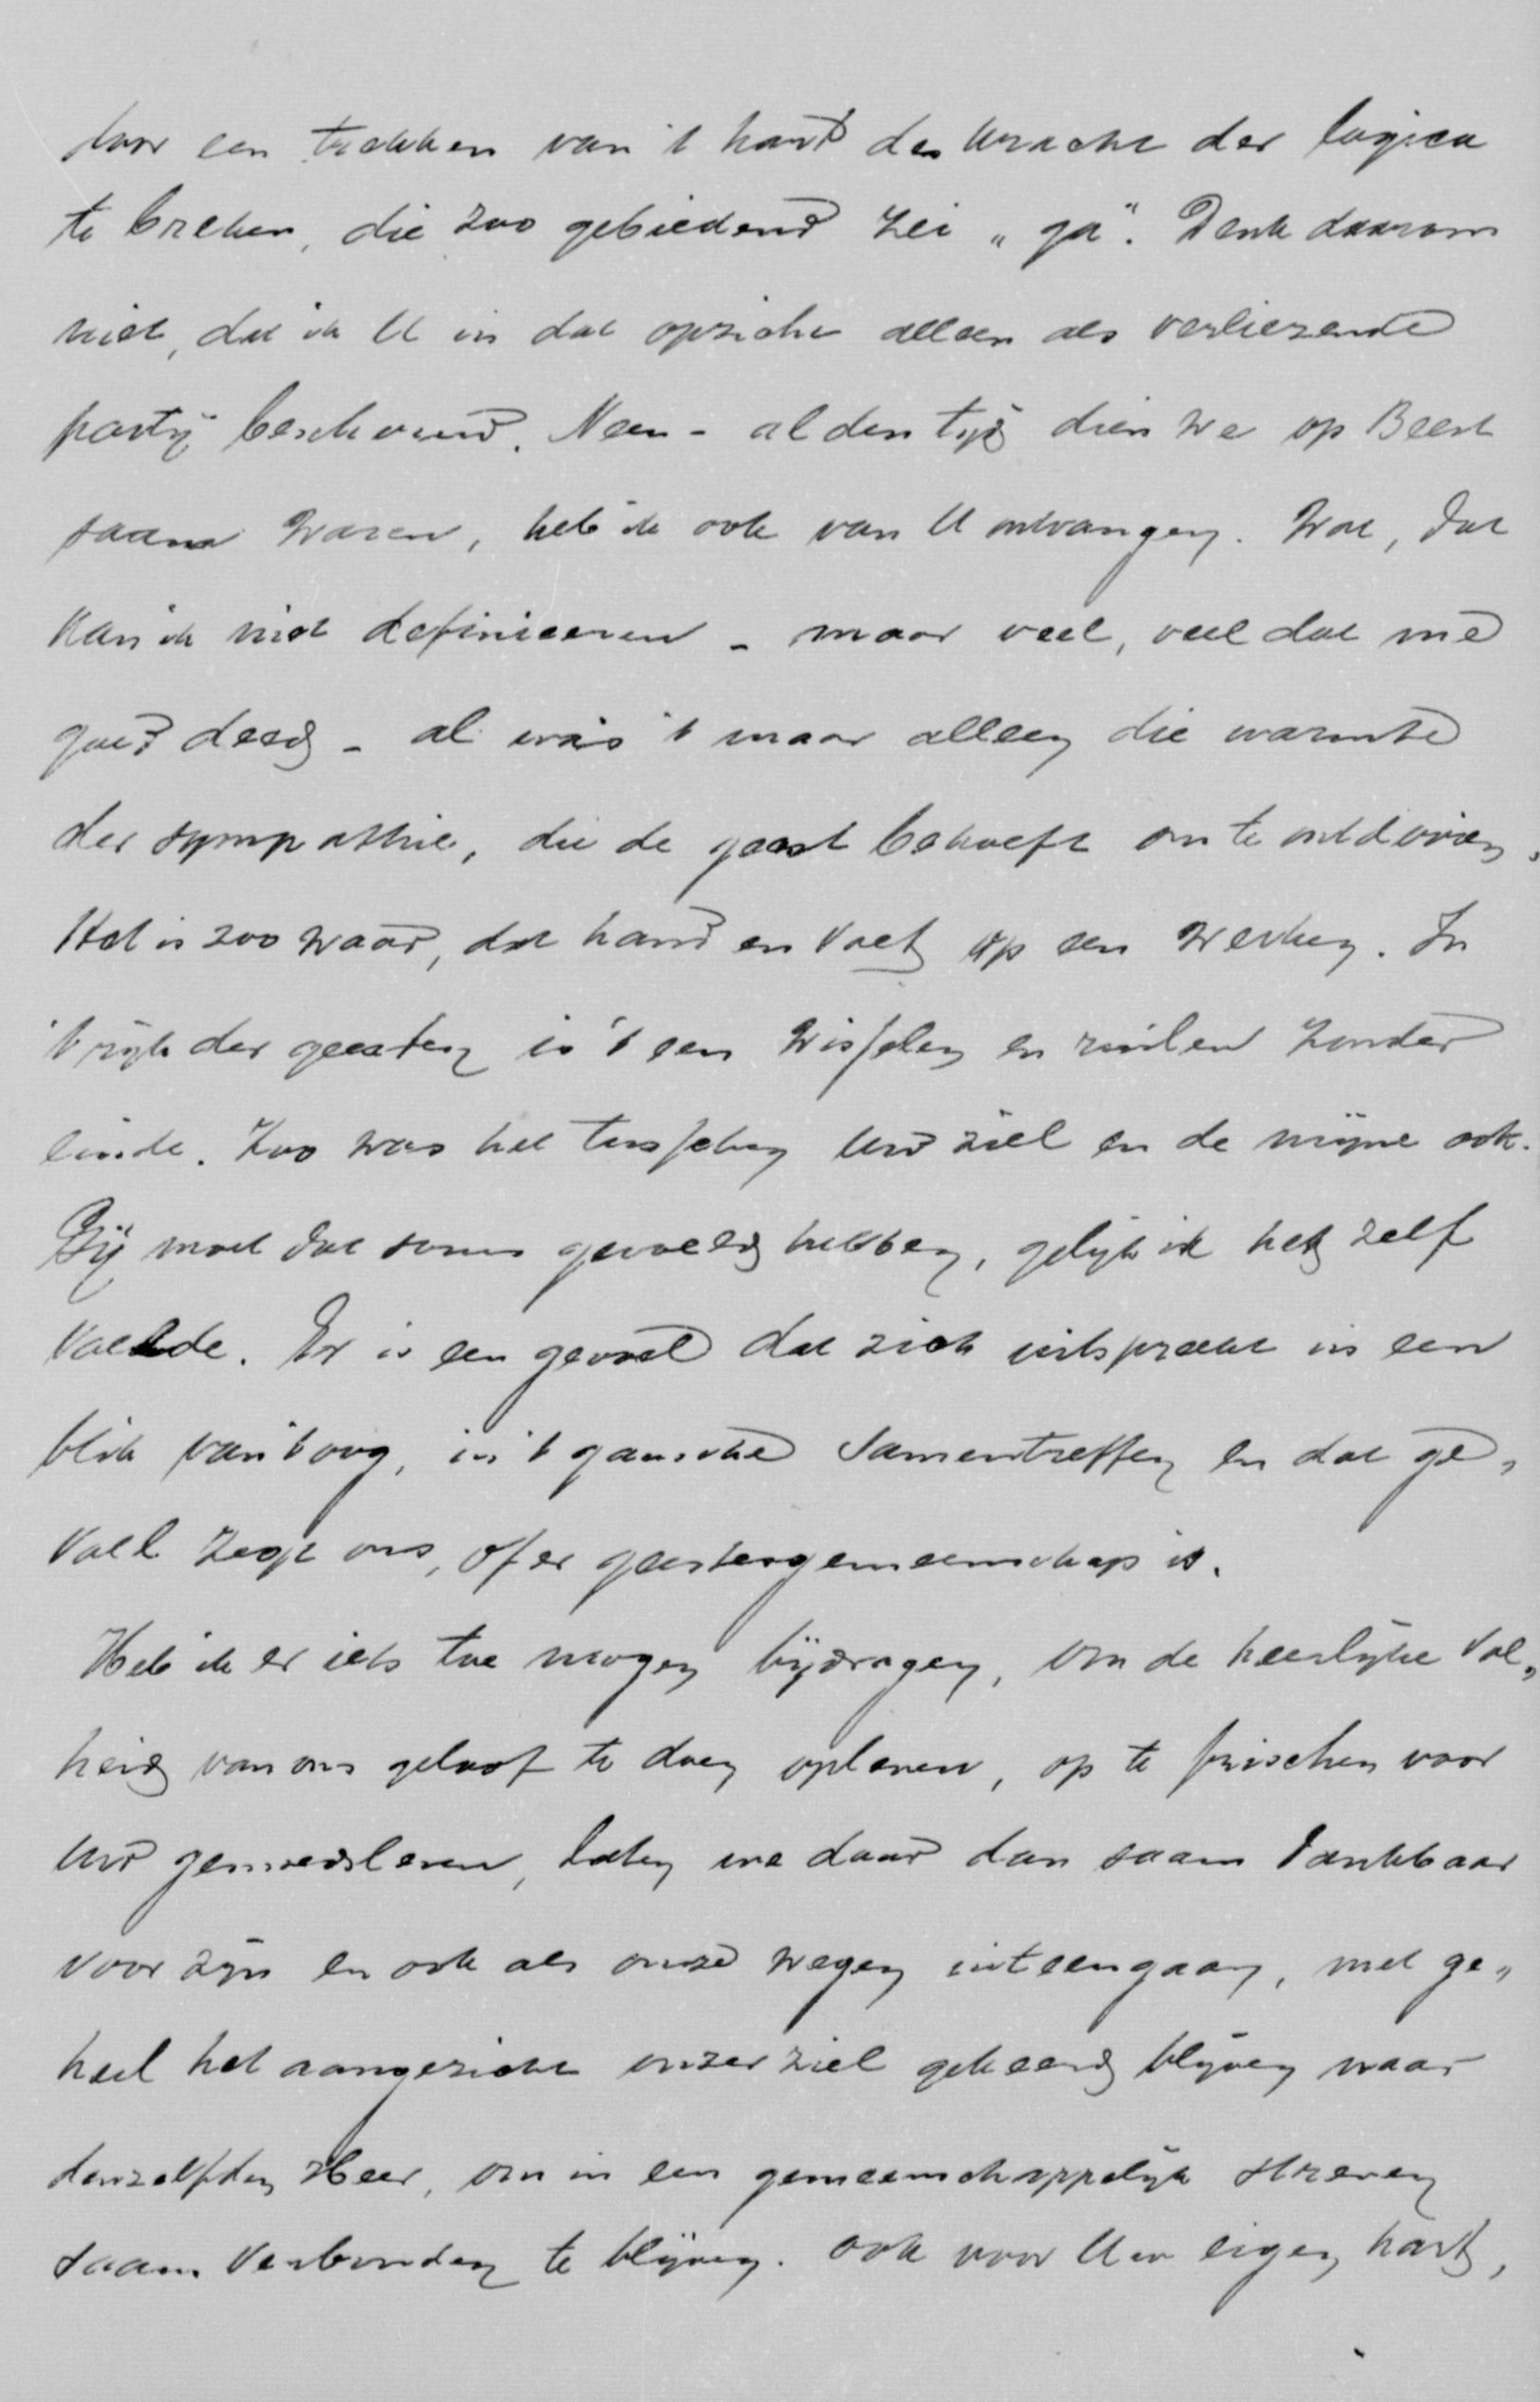 door een trekken van 't hart de kracht der logica
te breken, die zoo gebiedend zei „ga". Denk daarom
niet, dat ik U in dat opzicht alleen als verliezende
partij beschouw. Neen - al den tijd dien we op Beest
saam waren, heb ik ook van U ontvangen. Wat, dat
kan ik niet definieeren - maar veel, veel dat me
goed deed - al was 't maar alleen die warmte
der sympathie, die de geest behoeft om te ontdooien.
Het is zoo waar, dat hand en voet op een werken. In
't rijk der geesten is 't een wisselen en ruilen zonder
einde. Zoo was het tusschen uw ziel en de mijne ook.
Gij moet dat soms gevoeld hebben, gelijk ik het zelf
voelde. Er is een gevoel dat zich uitspreekt in een
blik van 't oog, in 't gansche samentreffen en dat ge„
voel zegt ons, of er geestesgemeenschap is.
Heb ik er iets toe mogen bijdragen, om de heerlijke vol„
heid van ons geloof te doen opleven, op te frisschen voor
uw gemoedsleven, laten we daar dan saam dankbaar
voor zijn en ook als onze wegen uiteengaan, met ge„
heel het aangezicht onzer ziel gekeerd blijven naar
denzelfden Heer, om in een gemeenschappelijk streven
saam verbonden te blijven. Ook voor Uw eigen hart,